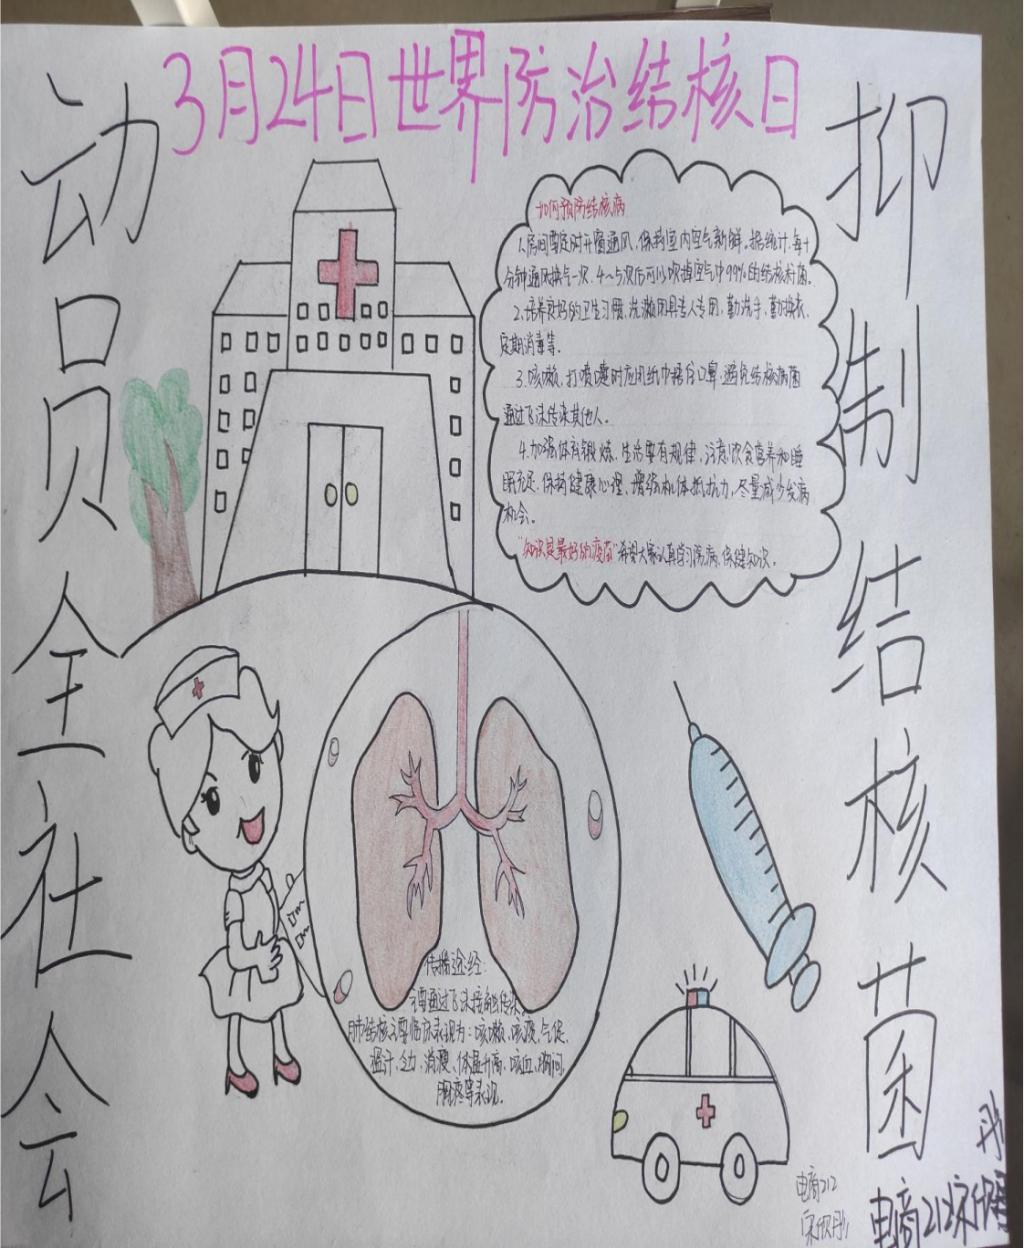 3月24日世界防治结核日
动员全社会
抑制结核菌
如何预防结核病
1.房间要定时开窗通风,保持室内空气新鲜。据统计,每十
分钟通风换气一次,4~5次后可以吹掉空气中99%的结核杆菌。
2.培养良好的卫生习惯,洗漱用具专人专用,勤洗手,勤换衣,
定期消毒等。
3.咳嗽,打喷嚏时应用纸巾捂住口鼻,避免结核病菌
通过飞沫传染其他人。
4.加强体育锻炼、生活要有规律,注意饮食营养和睡
眠充足,保持健康心理,增强机体抵抗力,尽量减少发病
机会。
"知识是最好的疫苗"希望大家认真学习防病,保健知识。
传播途经:
主要通过飞沫传播传染,
肺结核主要临床表现为:咳嗽、咳痰、气促、
盗汗、乏力、消瘦、体温升高、咳血、胸闷,
胸疼等表现。
电商212
宋欣彤
电商212宋欣
彤